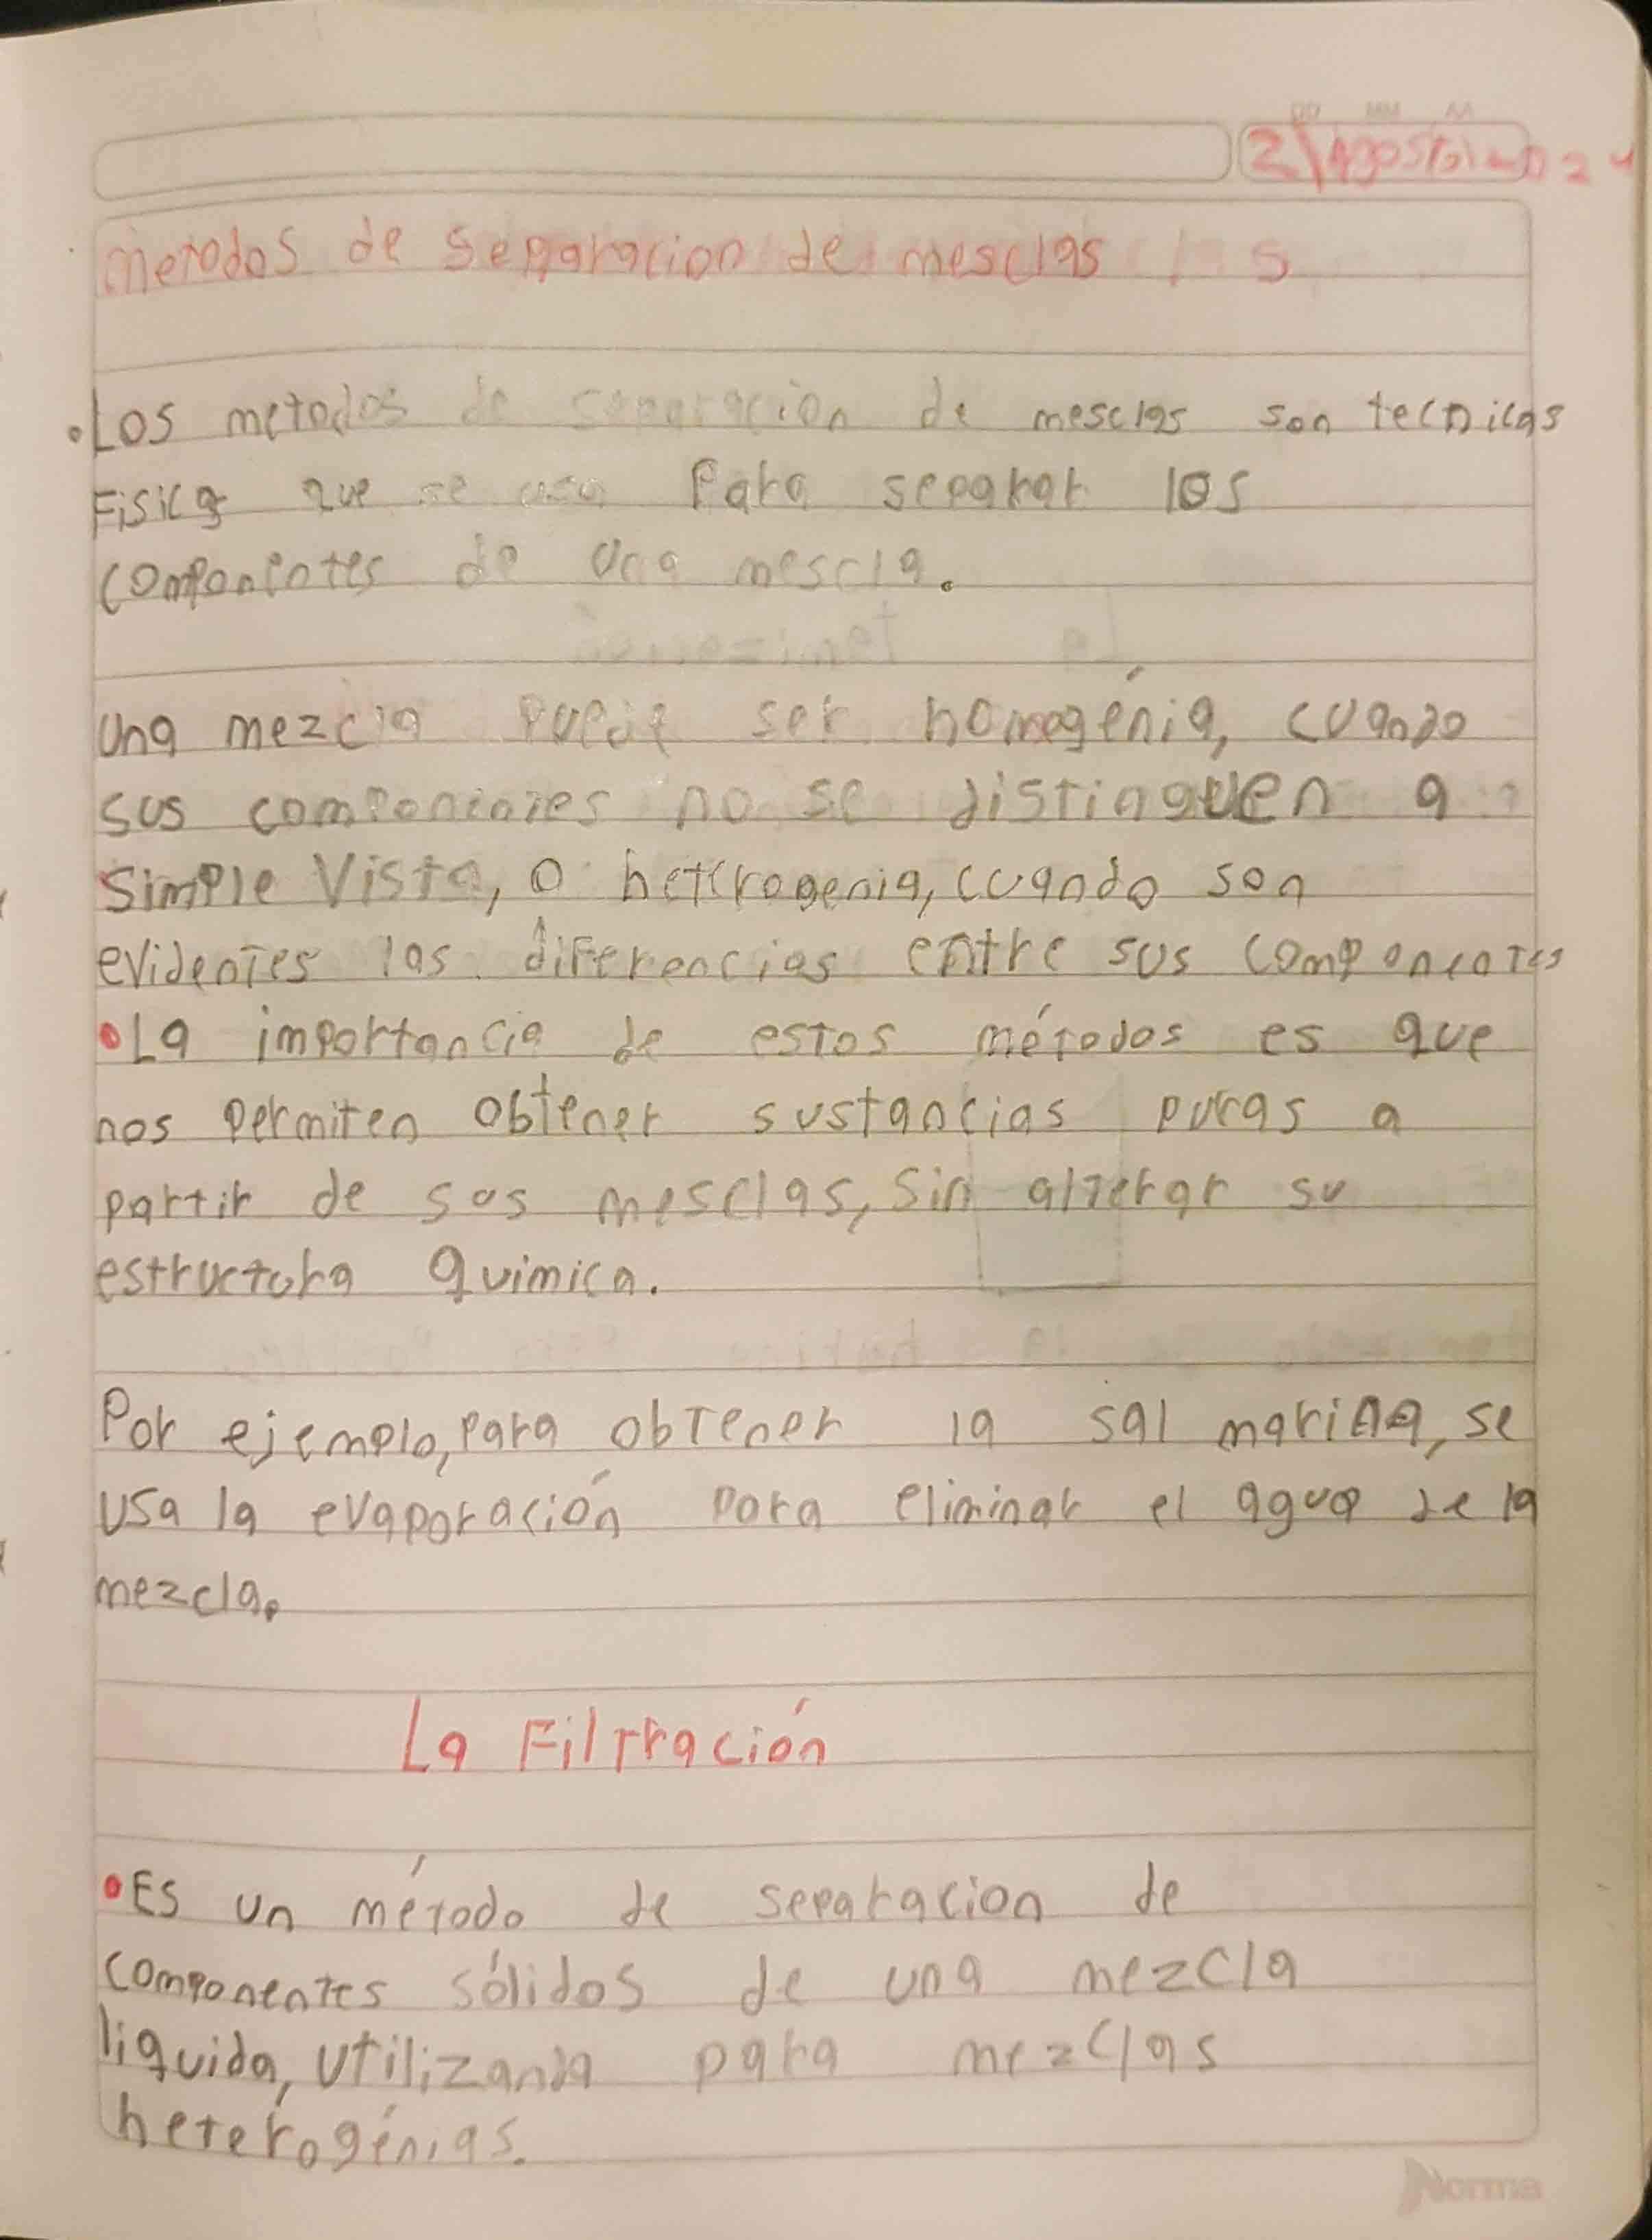 DD MM AA
2\Agosto\2024
metodos de separacion de mesclas
• Los metodos de separacion de mesclas son tecnicas
Fisica que se usa Para separar los
componentes de una mescla.
Una mezcla puede ser homogénia, cuando
sus componentes no se distinguen a
Simple Vista, o heterogenia, cuando son
evidentes las diferencias entre sus componentes
• La importancia de estos métodos es que
nos permiten obtener sustancias puras a
partir de sus mesclas, sin alterar su
estructura Quimica.
Por ejemplo, para obtener la sal marina, se
usa la evaporación para eliminar el agua de la
mezcla.
La Filtración
• Es un método de separacion de
componentes sólidos de una mezcla
liquida, utilizanda para mezclas
heterogénias.
Norma